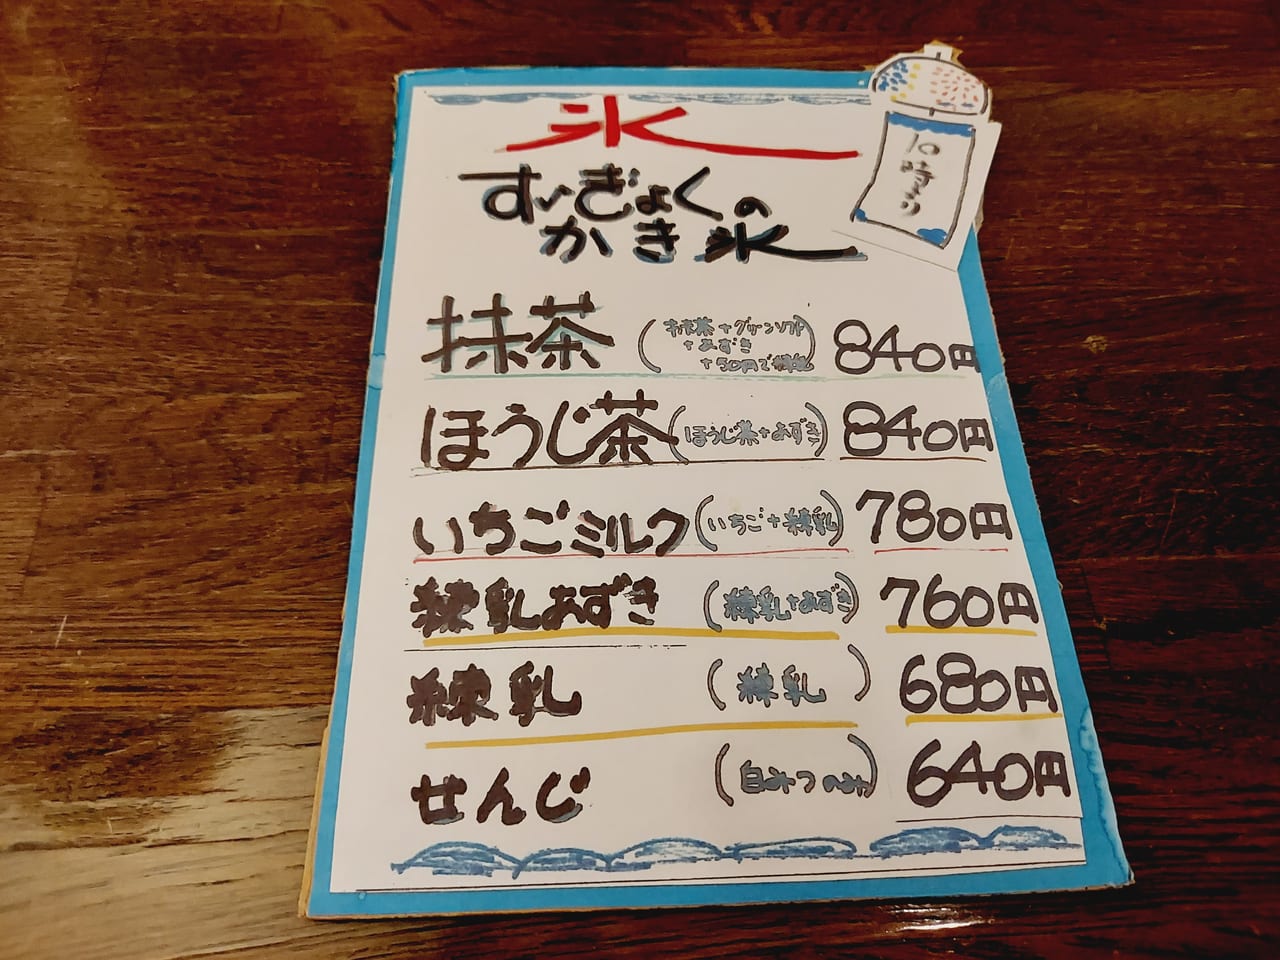 氷
10時より
すいぎょくの
かき氷
抹茶 (抹茶+グリーンソフト 840円
+あずき
+50円で練乳)
ほうじ茶 (ほうじ茶+あずき) 840円
いちごミルク (いちご+練乳) 780円
練乳あずき (練乳+あずき) 760円
練乳 (練乳) 680円
せんじ (白みつのみ) 640円